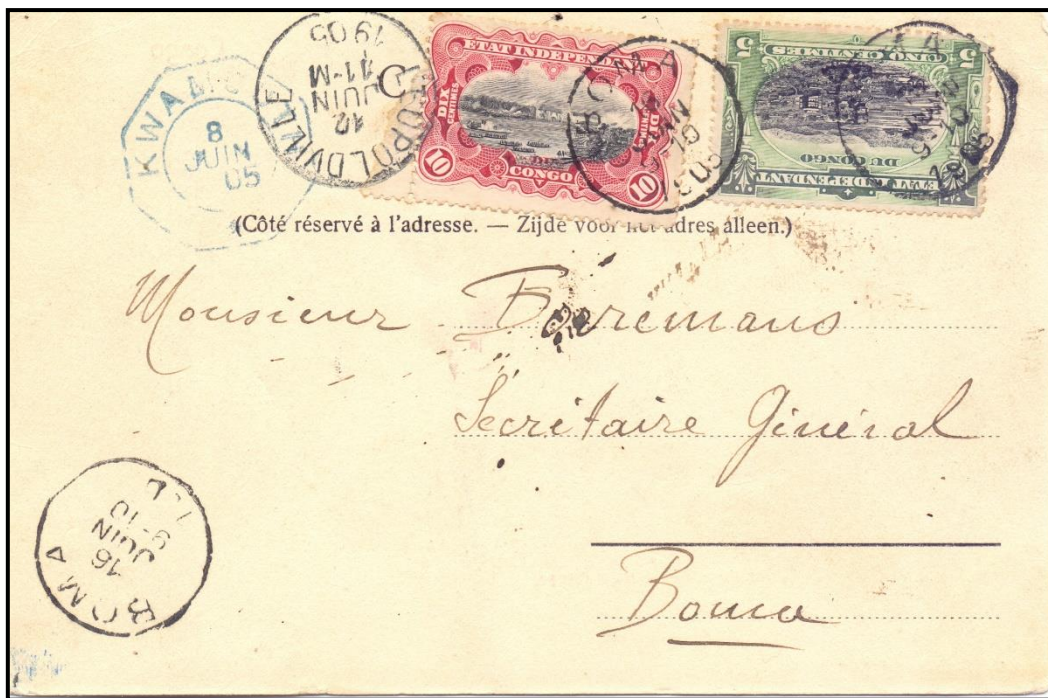 KWAMO
8
JUIN
05
LEOPOLDVILLE
12
JUIN
11-M
1905
ETAT INDEPENDANT
DU CONGO
DIX
CENTIMES
10
10
BOMA
CINQ CENTIMES
5
5
ETAT INDEPENDANT
DU CONGO
BOMA
(Côté réservé à l'adresse. — Zijde voor het adres alleen.)
Monsieur
Secrétaire Général
Boma
BOMA
16
JUIN
9-10